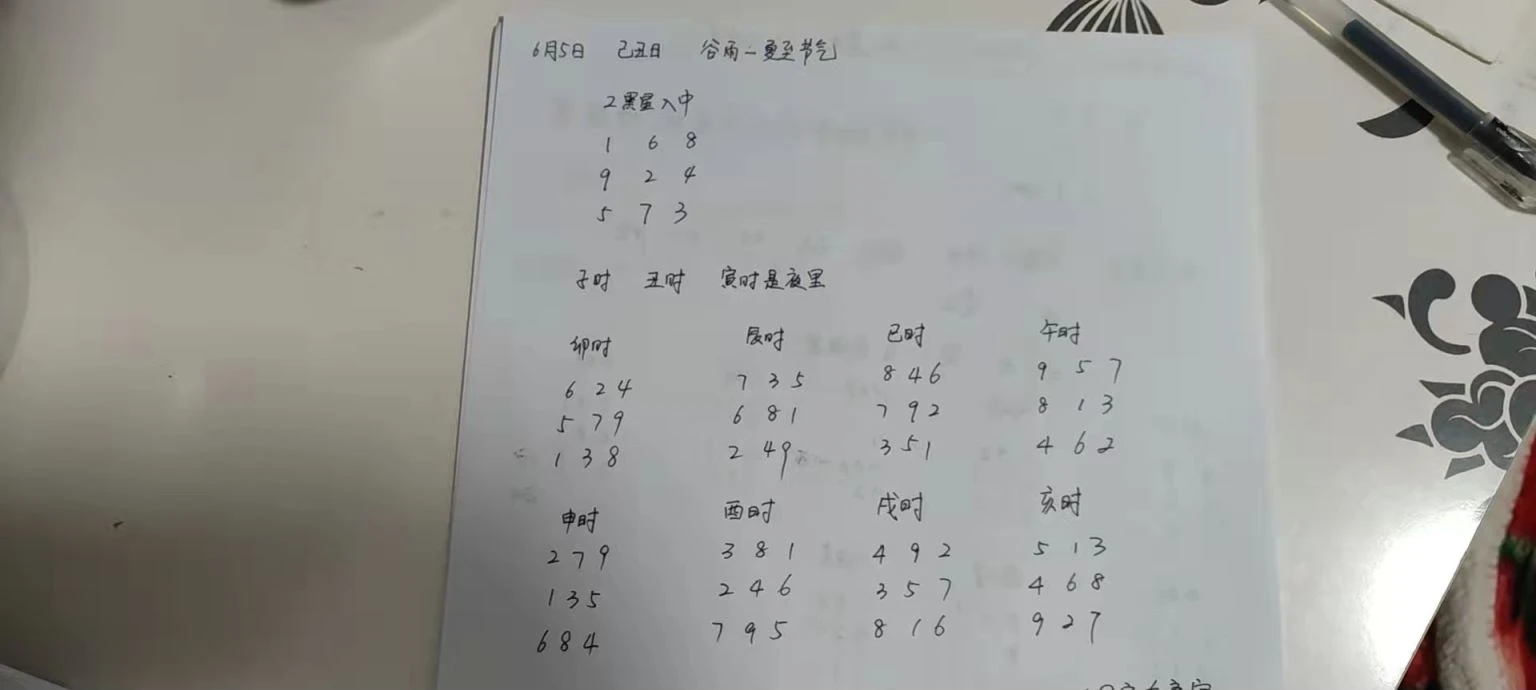 6月5日 己丑日 谷雨—夏至节气
2黑星入中
1 6 8
9 2 4
5 7 3
子时 丑时 寅时是夜里
卯时 辰时 巳时 午时
6 2 4 7 3 5 8 4 6 9 5 7
5 7 9 6 8 1 7 9 2 8 1 3
1 3 8 2 4 9 3 5 1 4 6 2
申时 酉时 戌时 亥时
2 7 9 3 8 1 4 9 2 5 1 3
1 3 5 2 4 6 3 5 7 4 6 8
6 8 4 7 9 5 8 1 6 9 2 7